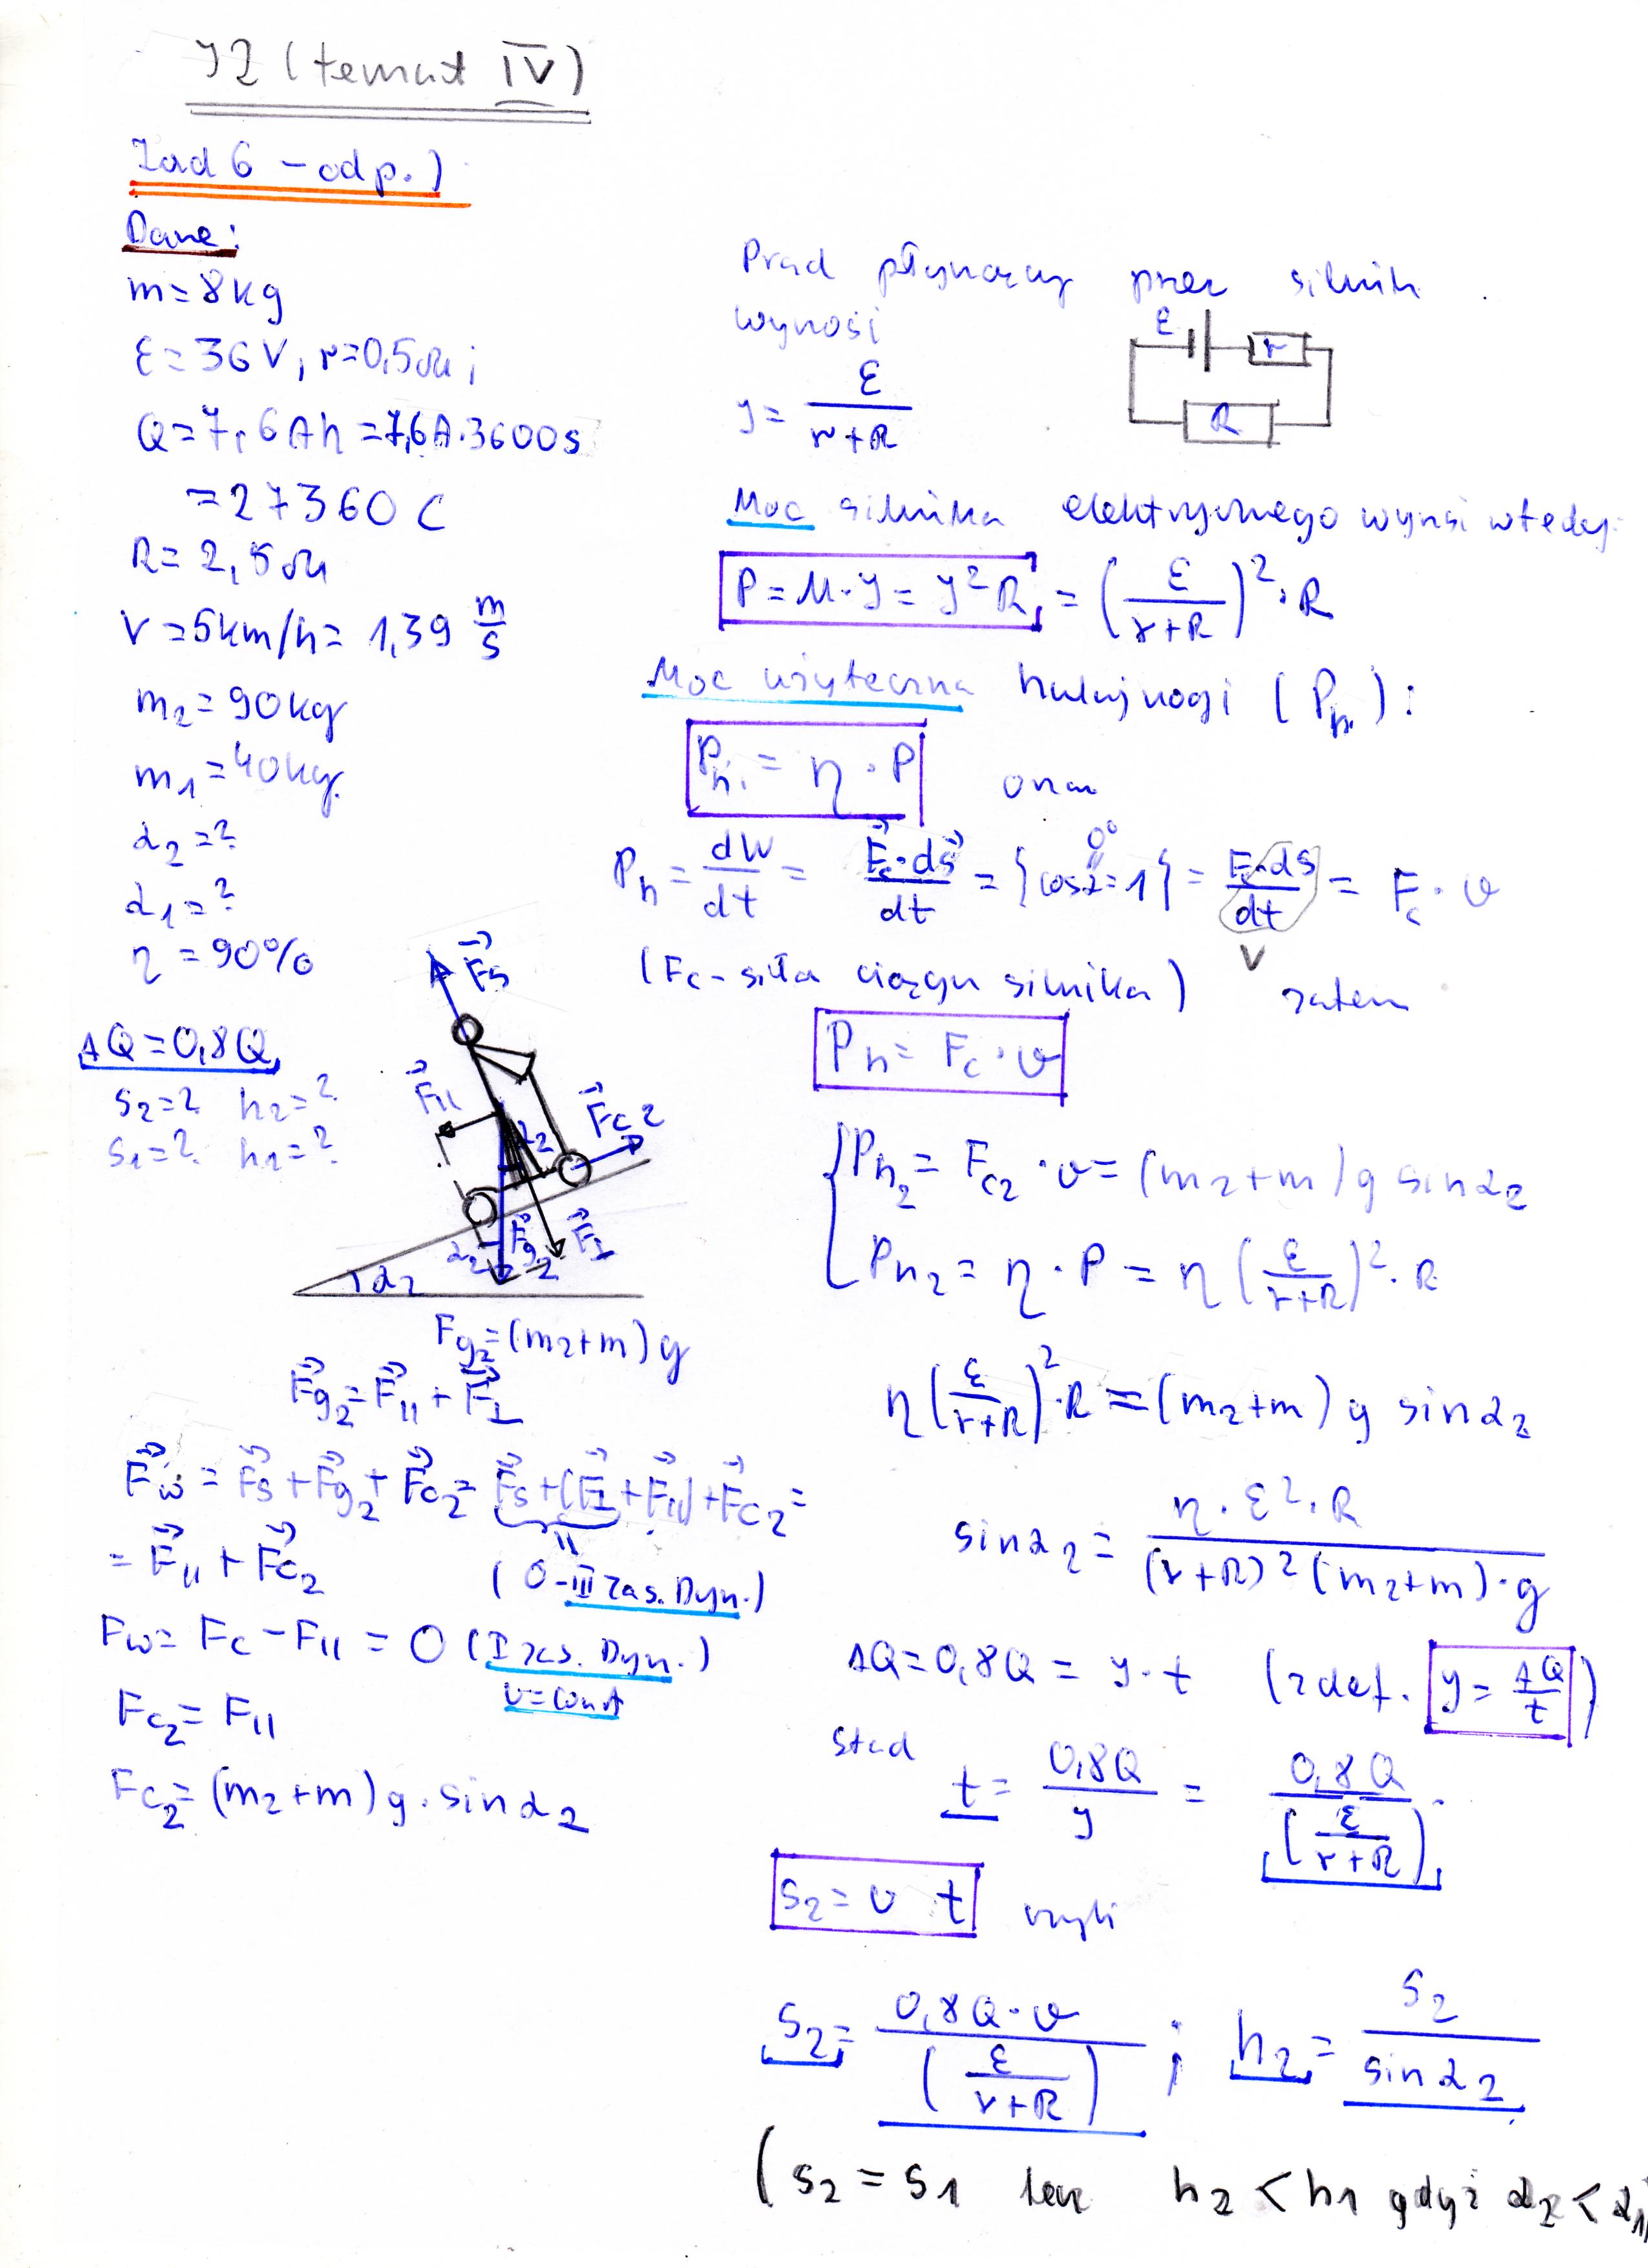 J2 (temat IV)
Zad 6 - odp.)
Dane:
m = 8kg
ε = 36V, r = 0,5Ω;
Q = 7,6Ah = 7,6A·3600s
= 27360 C
R = 2,5Ω
V = 5km/h = 1,39 m/s
m₂ = 90kg
m₁ = 40kg.
α₂ = ?
α₁ = ?
η = 90%
ΔQ = 0,8Q
s₂ = ? h₂ = ?
s₁ = ? h₁ = ?
F⃗s
F⃗∥
F⃗c2
α₂
F⃗g2
F⃗⊥
α₂
α₂
Fg₂ = (m₂+m)g
F⃗g₂ = F⃗∥ + F⃗⊥
F⃗w = F⃗s + F⃗g₂ + F⃗c₂ = F⃗s + (F⃗⊥ + F⃗∥) + F⃗c₂ =
= F⃗∥ + F⃗c₂ (0 - III zas. Dyn.)
Fw = Fc - F∥ = 0 (I zas. Dyn.)
v = const
Fc₂ = F∥
Fc₂ = (m₂+m)g · sinα₂
Prąd płynący przez silnik
wynosi
ε r
R
J = ε/(r+R)
Moc silnika elektrycznego wynosi wtedy
P = U·J = J²R = (ε/(r+R))²·R
Moc użyteczna hulajnogi (Ph):
Ph = η·P oraz
Ph = dW/dt = F⃗c·ds⃗/dt = {cosα = 1} = Fc·ds/dt = Fc·v
0°
V
(Fc - siła ciągu silnika) zatem
Ph = Fc·v
Ph₂ = Fc₂·v = (m₂+m)g sinα₂
Ph₂ = η·P = η(ε/(r+R))²·R
η(ε/(r+R))²·R = (m₂+m)g sinα₂
sinα₂ = η·ε²·R/((r+R)²(m₂+m)·g)
ΔQ = 0,8Q = J·t (z def. J = ΔQ/t)
stąd
t = 0,8Q/J = 0,8Q/(ε/(r+R))
s₂ = v t czyli
s₂ = 0,8Q·v/(ε/(r+R)) ; h₂ = s₂/sinα₂
(s₂ = s₁ lecz h₂ < h₁ gdyż α₂ < α₁)